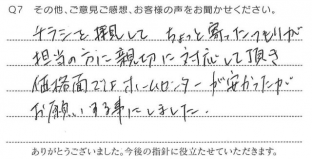 Q7 その他、ご意見ご感想、お客様の声をお聞かせください。
チラシを拝見して ちょっと寄ったつもりが
担当の方に親切に対応して頂き
価格面でも ホームセンターが安かったが
お願いする事にしました.
ありがとうございました。今後の指針に役立たせていただきます。